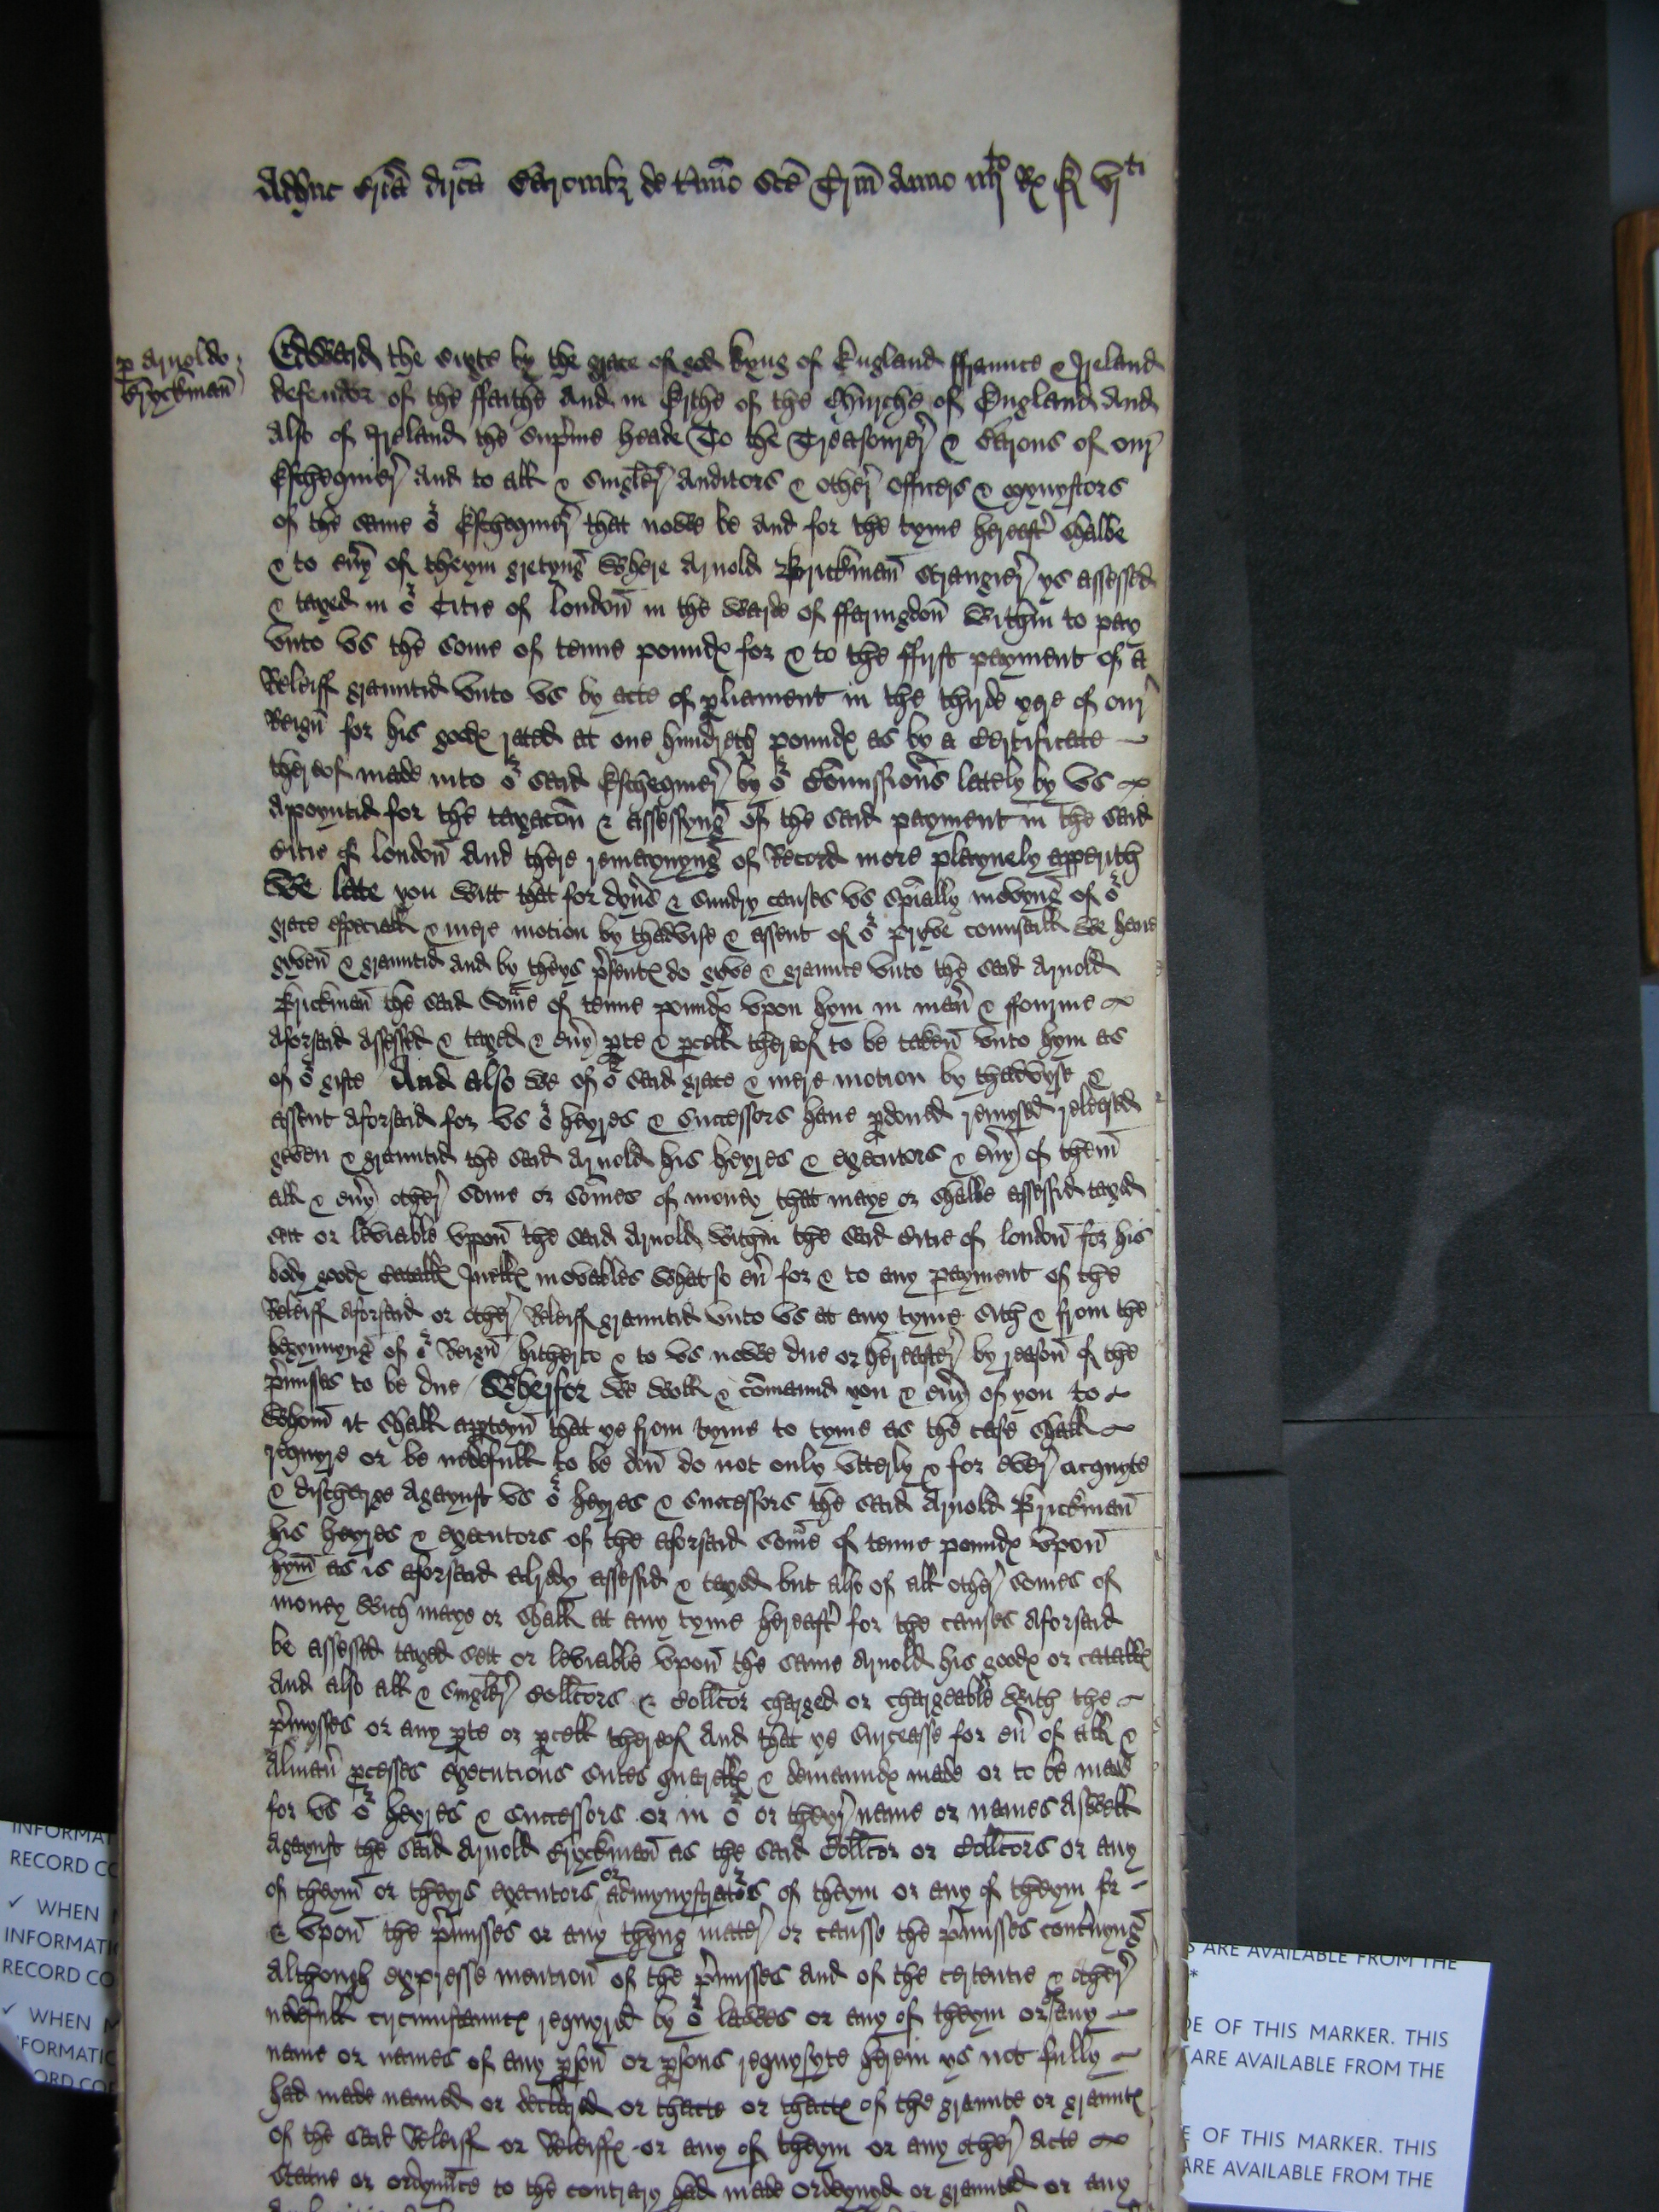 Adhuc bria dirca Baronibz de tmio sce Trin anno iiijto Rx E vjti
p Arnoldo
Bryckman
Edward the sixte by the grace of god kyng of England ffraunce & Ireland
defendor of the ffaithe And in Erthe of the Churche of England And
Also of Ireland the supme heade To the Treasourer & Barons of our
Eschequier And to all & singler Auditors & other officers & mynystors
of the same or Eschequier that nowe be And for the tyme hereaft shalbe
& to euy of theym gretyng Where Arnold Brickman Straungier ys assessed
& taxed in or Citie of london in the warde of ffaringdon within to pay
vnto vs the some of tenne poundx for & to the ffyrst payment of a
Releiff grauntid vnto vs by acte of pliament in the thyrde yere of our
Reign for his goodx rated at one hundreth poundx as by a Certificate
thereof made into or said Eschequier by or Comissions lately by vs
Appoyntid for the taxacon & assessyng of the said payment in the said
Citie of london And there remaynyng of Record more playnely apperith
We late you witt that for dyus & sundry causes vs spially movyng of or
grace especiall & mere motion by thadvise & assent of or pryve counsaill We haue
gyven & grauntid and by theys psentx do gyve & graunte vnto the said Arnold
Brickman the said Some of tenne poundx vpon hym in man & fourme
aforsaid assessed & taxed & euy pte & pcell thereof to be taken vnto hym as
of or gifte And also we of or said grace & mere motion by thadvyse &
assent aforsaid for vs or heyres & successors haue pdoned remysed released
geven & grauntid the said Arnold his heyres & executors & euy of them
all & euy other some or somes of money that maye or shalbe assessid taxed
sett or leviable vppon the said Arnold within the said Citie of london for his
body goodx catallx Juellx movables what so eu for & to any payment of the
Releiff aforsaid or other Releiff grauntid vnto vs at any tyme sith & from the
begynnyng of or Reign hitherto & to vs nowe due or hereafter by reason of the
pmisses to be due Wherfor we woll & comaund you & euy of you to
Whom it shall apptayn that ye from tyme to tyme as the case shall
requyre or be nedefull to be don do not only vtterly & for ever acquyte
& discharge Agaynst vs or heyres & successors the said Arnold Brickman
his heyres & executors of the aforsaid some of tenne poundx vpon
hym as is aforsaid alredy assessid & taxed but also of all other somes of
money wich maye or shall at any tyme hereaft for the causes aforsaid
be assessed taxed sett or leviable vpon the same Arnold his goodx or catallx
And also all & singler collctors & collctor charged or chargeable with the
pmysses or any pte or pcell thereof And that ye surceasse for eu of all &
Alman pcesses executions sutes querellx & demaundx made or to be made
for vs or heyres & successors or in or or theyr name or names Aswell
Agaynst the said Arnold Bryckman as the said Collctor or Collctors or any
of theym or theyrs executors or admynystrators of theym or any of theym for
& vpon the pmisses or any thyng mater or causse the pmisses concnyng
Although expresse mention of the pmisses and of the certentie & other
nedefull circumstauncx requyred by or lawes or any of theym or of any
name or names of any pson or psons requysyte herein ys not fully
had made named or declared or thacte or thactx of the graunte or grauntx
of the said Releiff or Releiffx or any of theym or any other Acte
Statue or ordynnce to the contrary had made ordeyned or graunted or any
INFORMAT
RECORD CO
✓ WHEN
INFORMATI
RECORD CO
✓ WHEN
FORMATIC
ORD COP
S ARE AVAILABLE FROM THE
*
DE OF THIS MARKER. THIS
ARE AVAILABLE FROM THE
E OF THIS MARKER. THIS
ARE AVAILABLE FROM THE